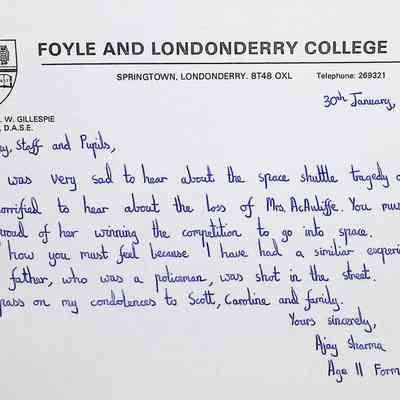 FOYLE AND LONDONDERRY COLLEGE
SPRINGTOWN, LONDONDERRY. BT48 OXL Telephone: 269321
W. GILLESPIE
D.A.S.E.
30th January,
Staff and Pupils,
was very sad to hear about the space shuttle tragedy
to hear about the loss of Mrs McAuliffe. You
of her winning the competition to go into space.
how you must feel because I have had a similiar
father, who was a policeman, was shot in the street.
pass on my condolences to Scott, Caroline and family.
Yours sincerely,
Ajay Sharma
Age 11 Form